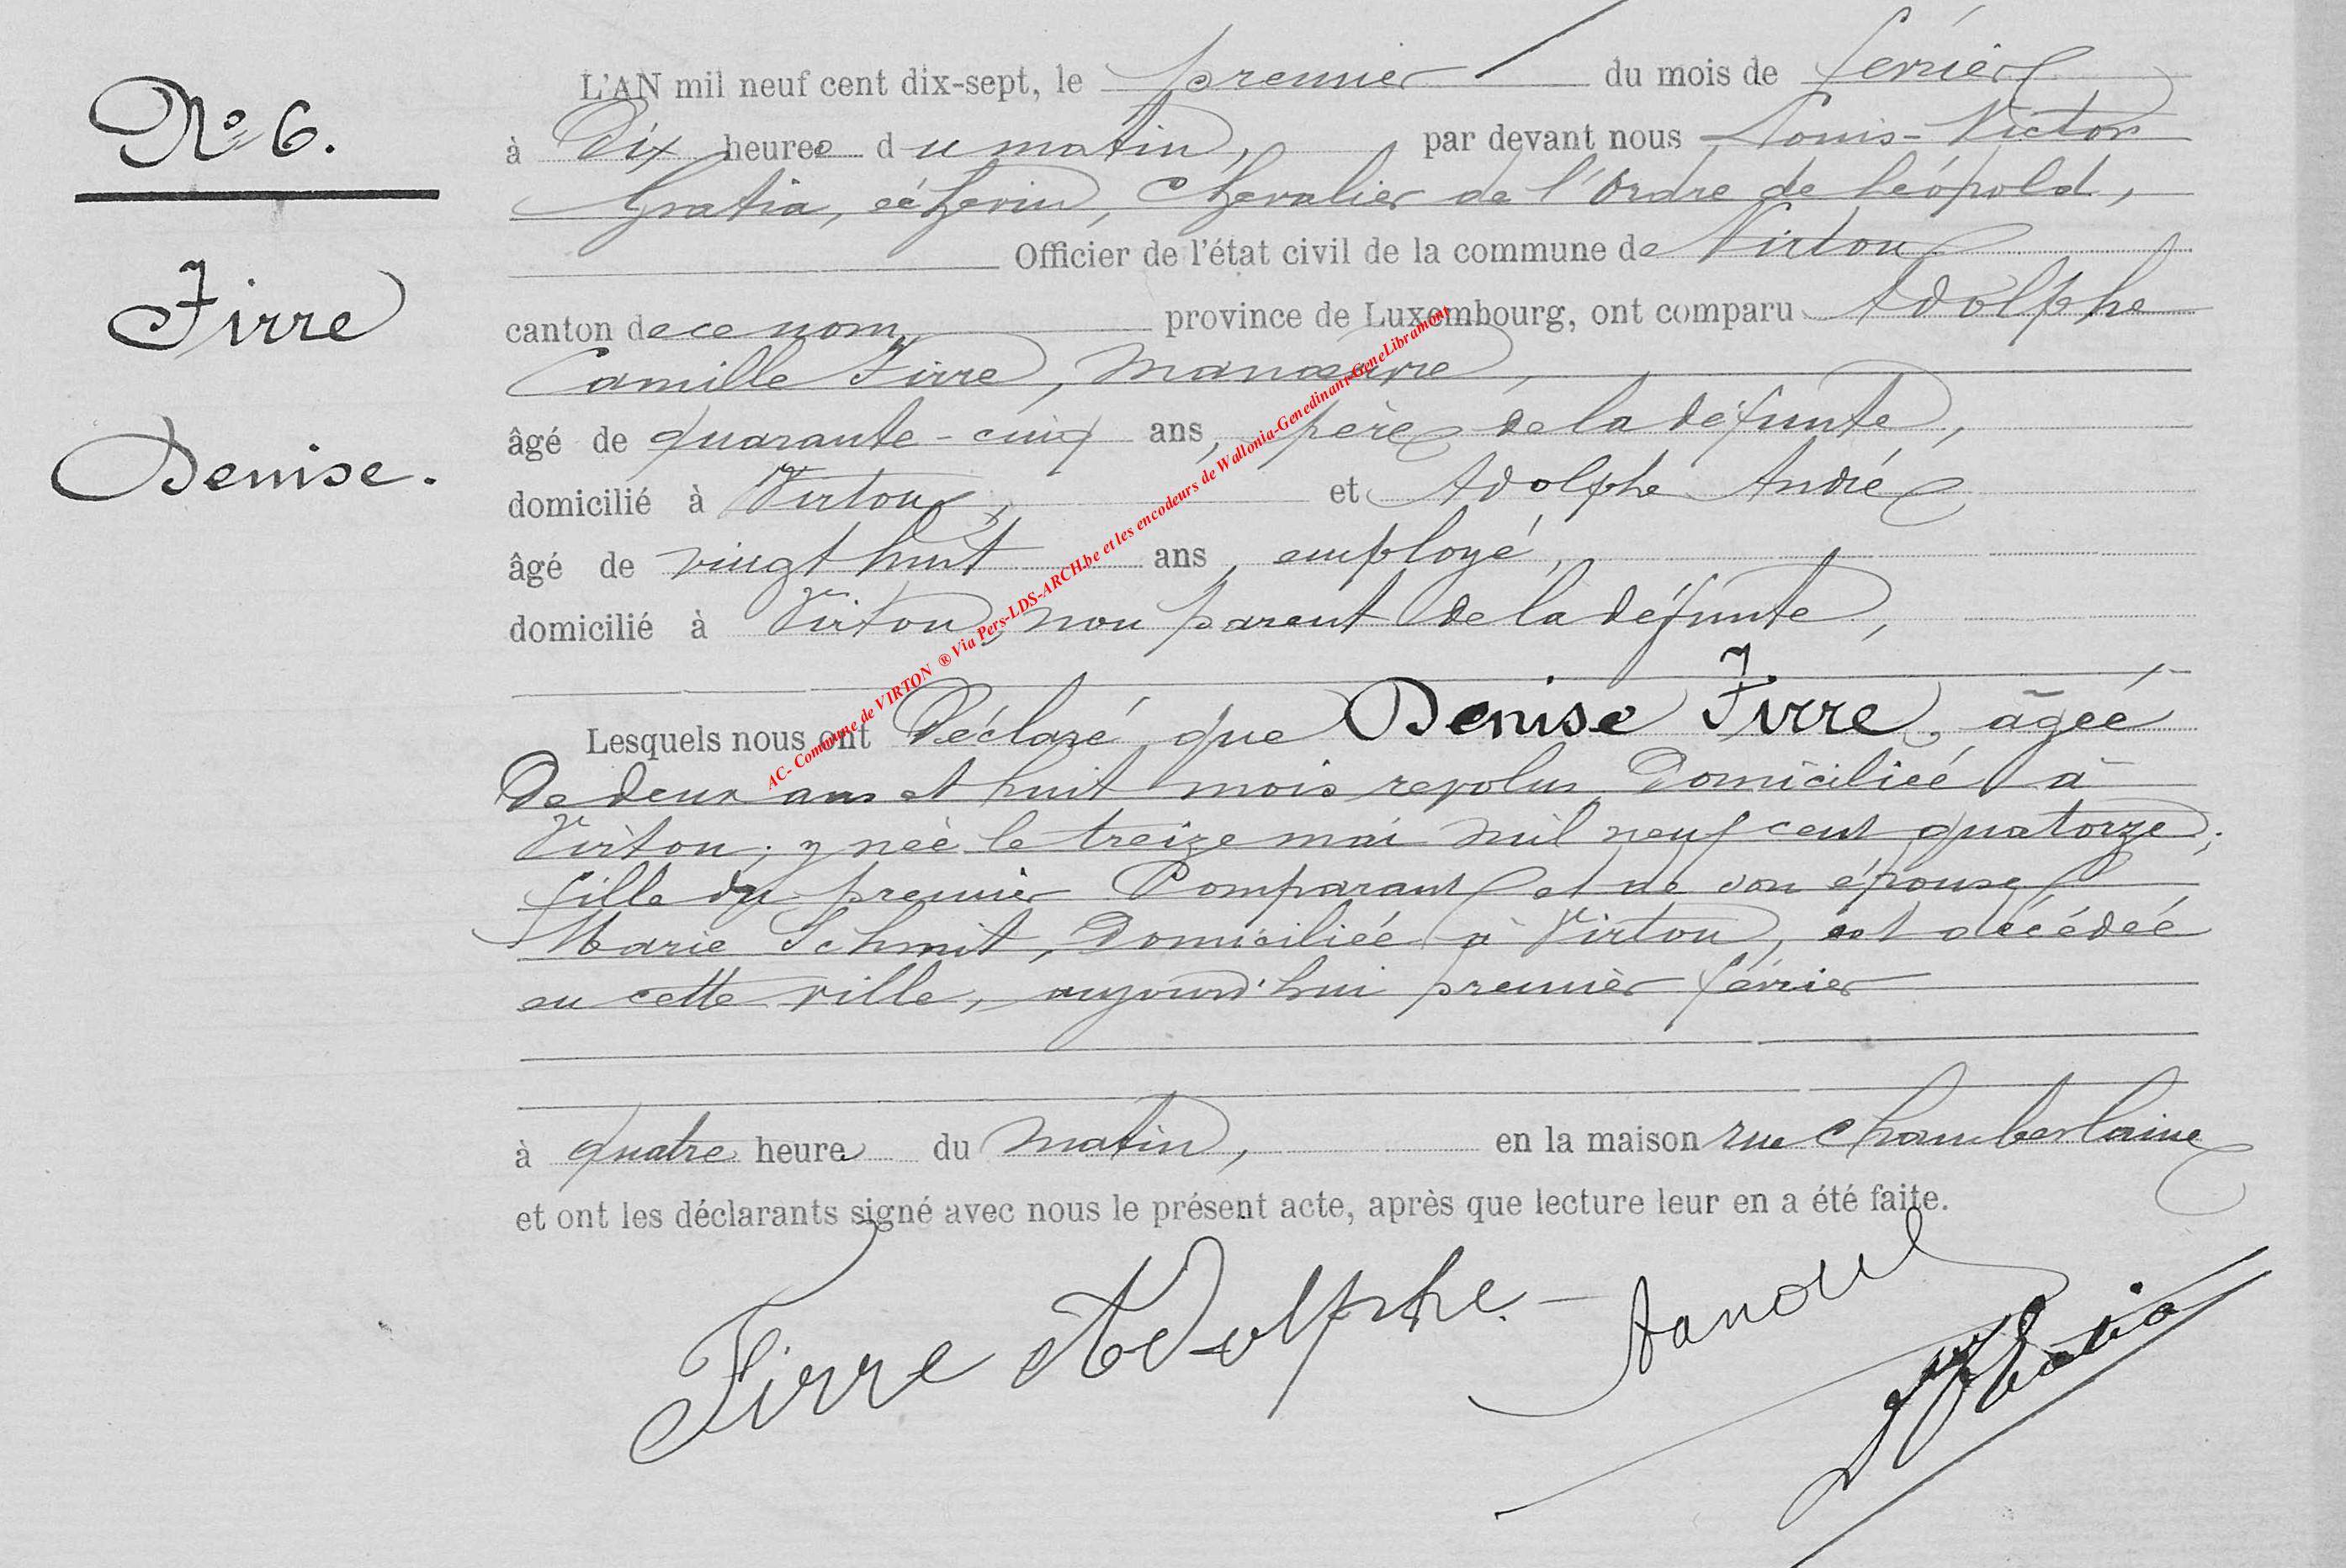 N° 6.
Firre
Denise.
L'AN mil neuf cent dix-sept, le premier du mois de février
à Dix heures du matin, par devant nous Louis-Victor
Gratia, échevin, Chevalier de l'Ordre de Léopold,
Officier de l'état civil de la commune de Virton
canton de ce nom, province de Luxembourg, ont comparu Adolphe
Camille Firre, manœuvre,
âgé de quarante-cinq ans, père de la défunte,
domicilié à Virton, et Adolphe André
âgé de vingt huit ans, employé,
domicilié à Virton, non parent de la défunte,
Lesquels nous ont Déclaré que Denise Firre, âgée
De deux ans et huit mois revolus, Domiciliée à
Virton, y née le treize mai mil neuf cent quatorze,
fille du premier Comparant et de son épouse
Marie Schmit, Domiciliée à Virton, est décédée
en cette ville, aujourd'hui premier février
à quatre heure du matin, en la maison rue Chamberlaine
et ont les déclarants signé avec nous le présent acte, après que lecture leur en a été faite.
Firre Adolphe
AC- Commune de VIRTON ® Via Pers-LDS-ARCH.be et les encodeurs de Wallonia-Genedinant-GeneLibramont